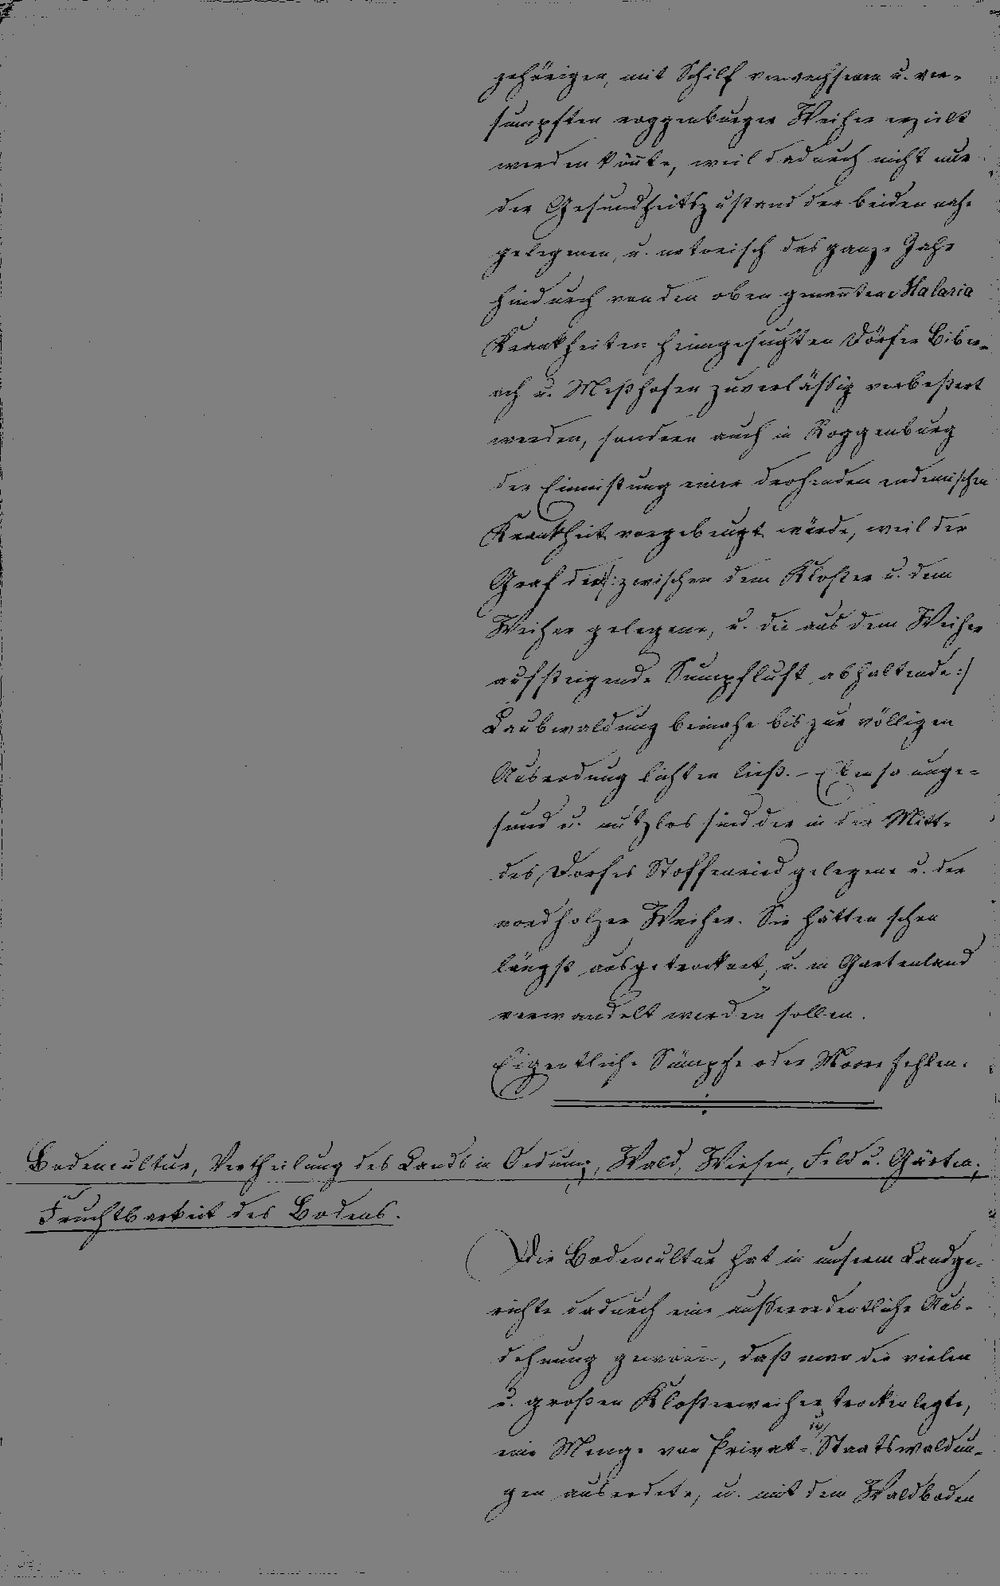 gehörigen, mit Schilf verwachsenen u. ver-
sumpften roggenburger Weiher erzielt
werden könnte, weil dadurch nicht nur
der Gesundheitszustand der beiden nah-
gelegenen, u. notorisch das ganze Jahr
hindurch von den oben genannten Malaria
Krankheiten heimgesuchten Dörfer Biber-
ach u. Meßhofen zuverläßig verbeßert
werden, sondern auch in Roggenburg
der Einnistung einer drohenden endemischen
Krankheit vorgebeugt würde, weil der
Graf die /: zwischen dem Kloster u. dem
Weiher gelegene, u. die aus dem Weiher
aufsteigende Sumpfluft abhaltende :/
Laubwaldung beinahe bis zur völligen
Ausrodung lichten ließ. – Ebenso unge-
sund u. nutzlos sind der in der Mitte
des Dorfes Stoffenried gelegene u. der
nordholzer Weiher. Sie hätten schon
längst ausgetrocknet, u. in Gartenland
verwandelt werden sollen.
Eigentliche Sümpfe oder Moore fehlen.
Bodencultur, Vertheilung des Lands in Oedung, Wald, Wiesen, Feld u. Gärten;
Fruchtbarkeit des Bodens.
Die Bodencultur hat in unserem Landge-
richte dadurch eine außerordentliche Aus-
dehnung gewonnen, daß man die vielen
u. großen Klosterweiher trockenlegte,
eine Menge von Privat- u. Staatswaldun-
gen ausrodete, u. mit dem Waldboden